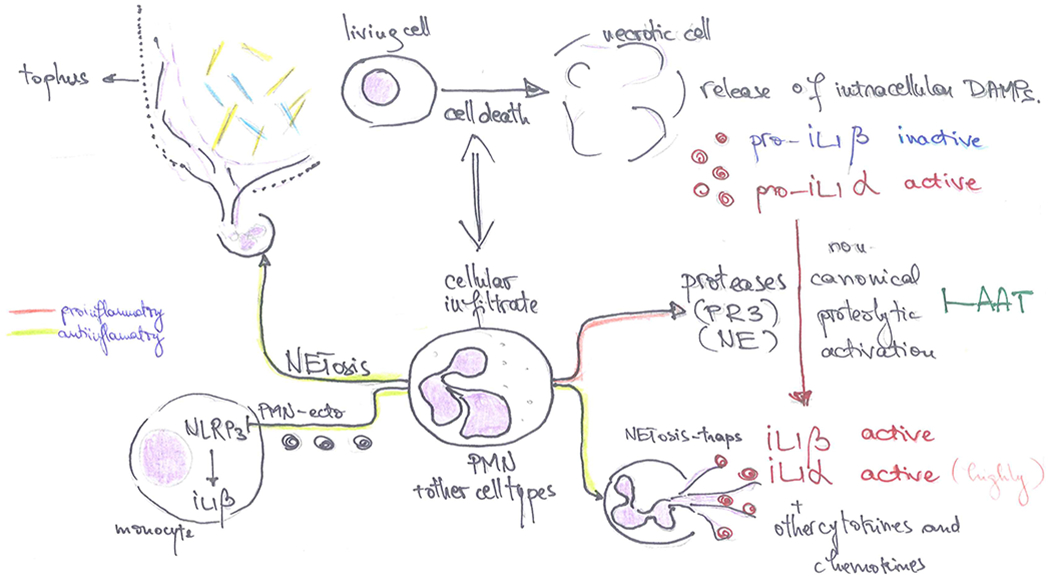 living cell
necrotic cell
tophus
cell death
release of intracellular DAMPs.
pro-iL1β inactive
pro-iL1α active
non-
canonical
proteolytic
activation
AAT
cellular
infiltrate
proteases
(PR3)
(NE)
proinflamatry
antiinflamatry
NETosis
PMN-ecto
NLRP3
iL1β
monocyte
PMN
+other cell types
NETosis-traps
iL1β active
iL1α active (highly)
+
other cytokines and
chemokines